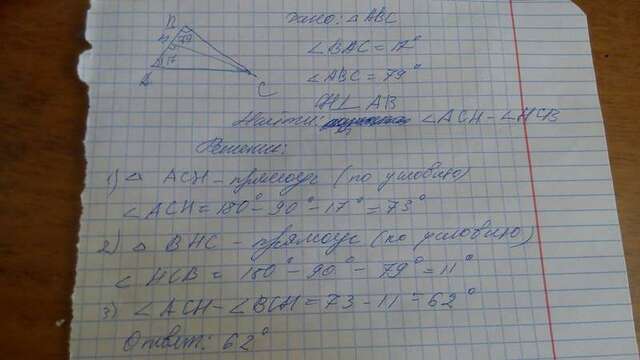 Дано: △ ABC
∠BAC = 17°
∠ABC = 79°
CH⊥AB
Найти: ∠ACH - ∠HCB
Решение:
B
H 79
17
A
C
1) △ ACH - прямоуг (по условию)
∠ ACH = 180° - 90° - 17° = 73°
2) △ BHC - прямоуг (по условию)
∠ HCB = 180° - 90° - 79° = 11°
3) ∠ACH - ∠BCH = 73 - 11 = 62°
Ответ: 62°